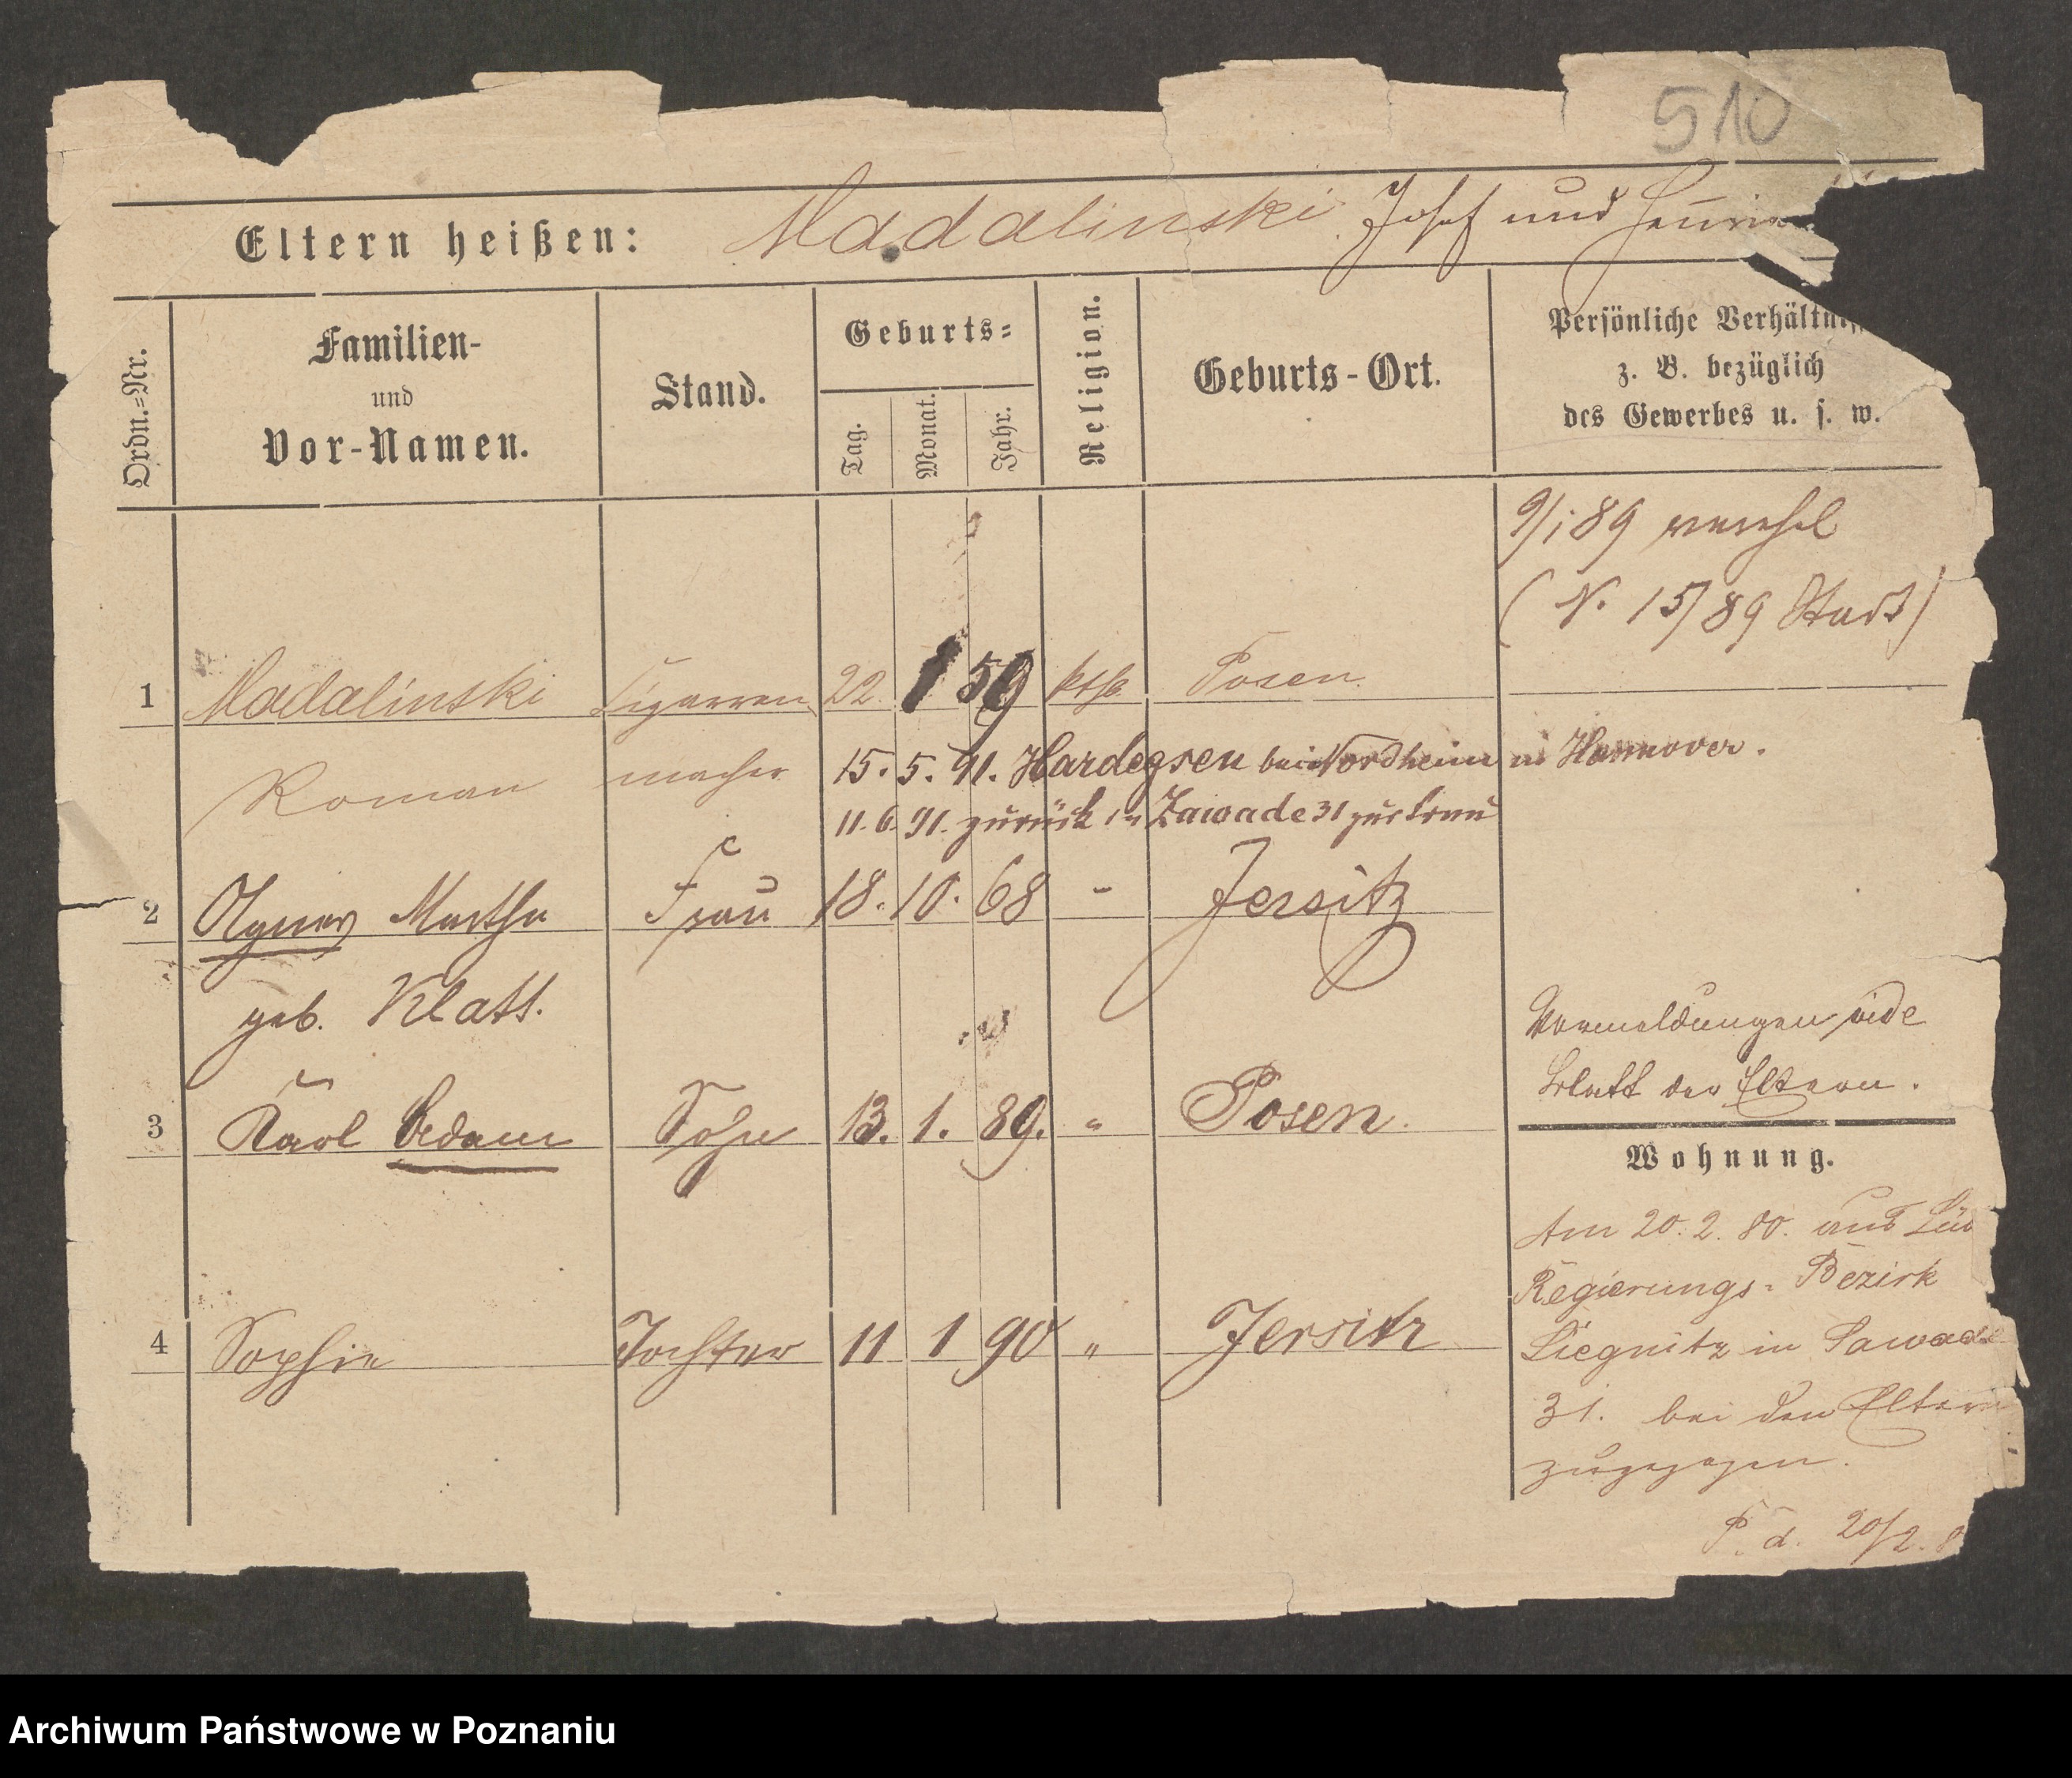 510
Eltern heißen: Madalinski Josef und
Ordn.=Nr.
Familien-
und
Vor-Namen.
Stand.
Geburts=
Tag.
Monat.
Jahr.
Religion.
Geburts-Ort.
Persönliche
z. B. bezüglich
des Gewerbes u. s. w.
9/1 89 verehel
(N. 15/89 Stadt)
1 Madalinski Cigarren 22. 59 kath Posen.
Roman macher 15. 5. 91. Hardegsen bei Nordheim in Hannover.
11. 6. 91. zurück in Zawade 31 zur Frau
2 Agnes Martha Frau 18. 10. 68 - Jersitz
geb. Klatt.
Vormeldungen vide
Blatt der Eltern.
3 Karl Adam Sohn 13. 1. 89. " Posen.
Wohnung.
Am 20. 2. 80. aus
Regierungs-Bezirk
4 Sophie Tochter 11 1 90 " Jersitz
Liegnitz in Zawade
31. bei den Eltern
zugezogen.
P. d. 20/2.
Archiwum Państwowe w Poznaniu